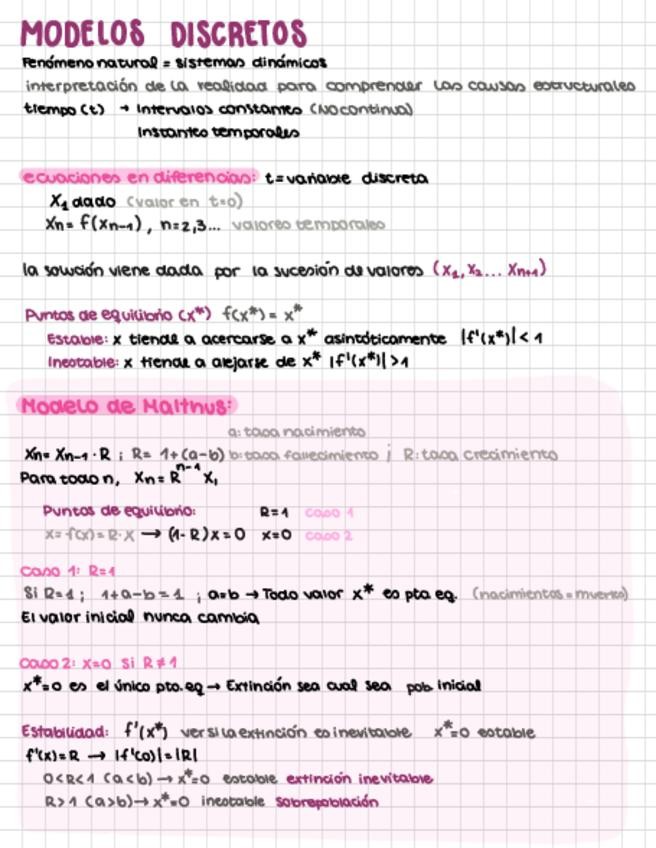 MODELOS DISCRETOS
Fenómeno natural = sistemas dinámicos
interpretación de la realidad para comprender las causas estructurales
tiempo (t) → Intervalos constantes (No continua)
Instantes temporales
ecuaciones en diferencias: t = variable discreta
X₁ dado (valor en t=0)
Xn = f(Xn-1), n=2,3... valores temporales
la solución viene dada por la sucesión de valores (X₁, X₂... Xn+1)
Puntos de equilibrio (x*) f(x*) = x*
Estable: x tiende a acercarse a x* asintóticamente |f'(x*)| < 1
Inestable: x tiende a alejarse de x* |f'(x*)| > 1
Modelo de Malthus:
a: tasa nacimiento
Xn = Xn-1 · R ; R = 1+(a-b) b: tasa fallecimiento ; R: tasa crecimiento
Para todo n, Xn = Rⁿ⁻¹ X₁
Puntos de equilibrio: R=1 caso 1
x = f(x) = R·X → (1-R)x = 0 x=0 caso 2
Caso 1: R=1
Si R=1 ; 1+a-b = 1 ; a=b → Todo valor x* es pto eq. (nacimientos = muertes)
El valor inicial nunca cambia
Caso 2: X=0 Si R ≠ 1
x*=0 es el único pto. eq → Extinción sea cual sea pob. inicial
Estabilidad: f'(x*) ver si la extinción es inevitable x*=0 estable
f'(x) = R → |f'(0)| = |R|
0<R<1 (a<b) → x*=0 estable extinción inevitable
R>1 (a>b) → x*=0 inestable sobrepoblación